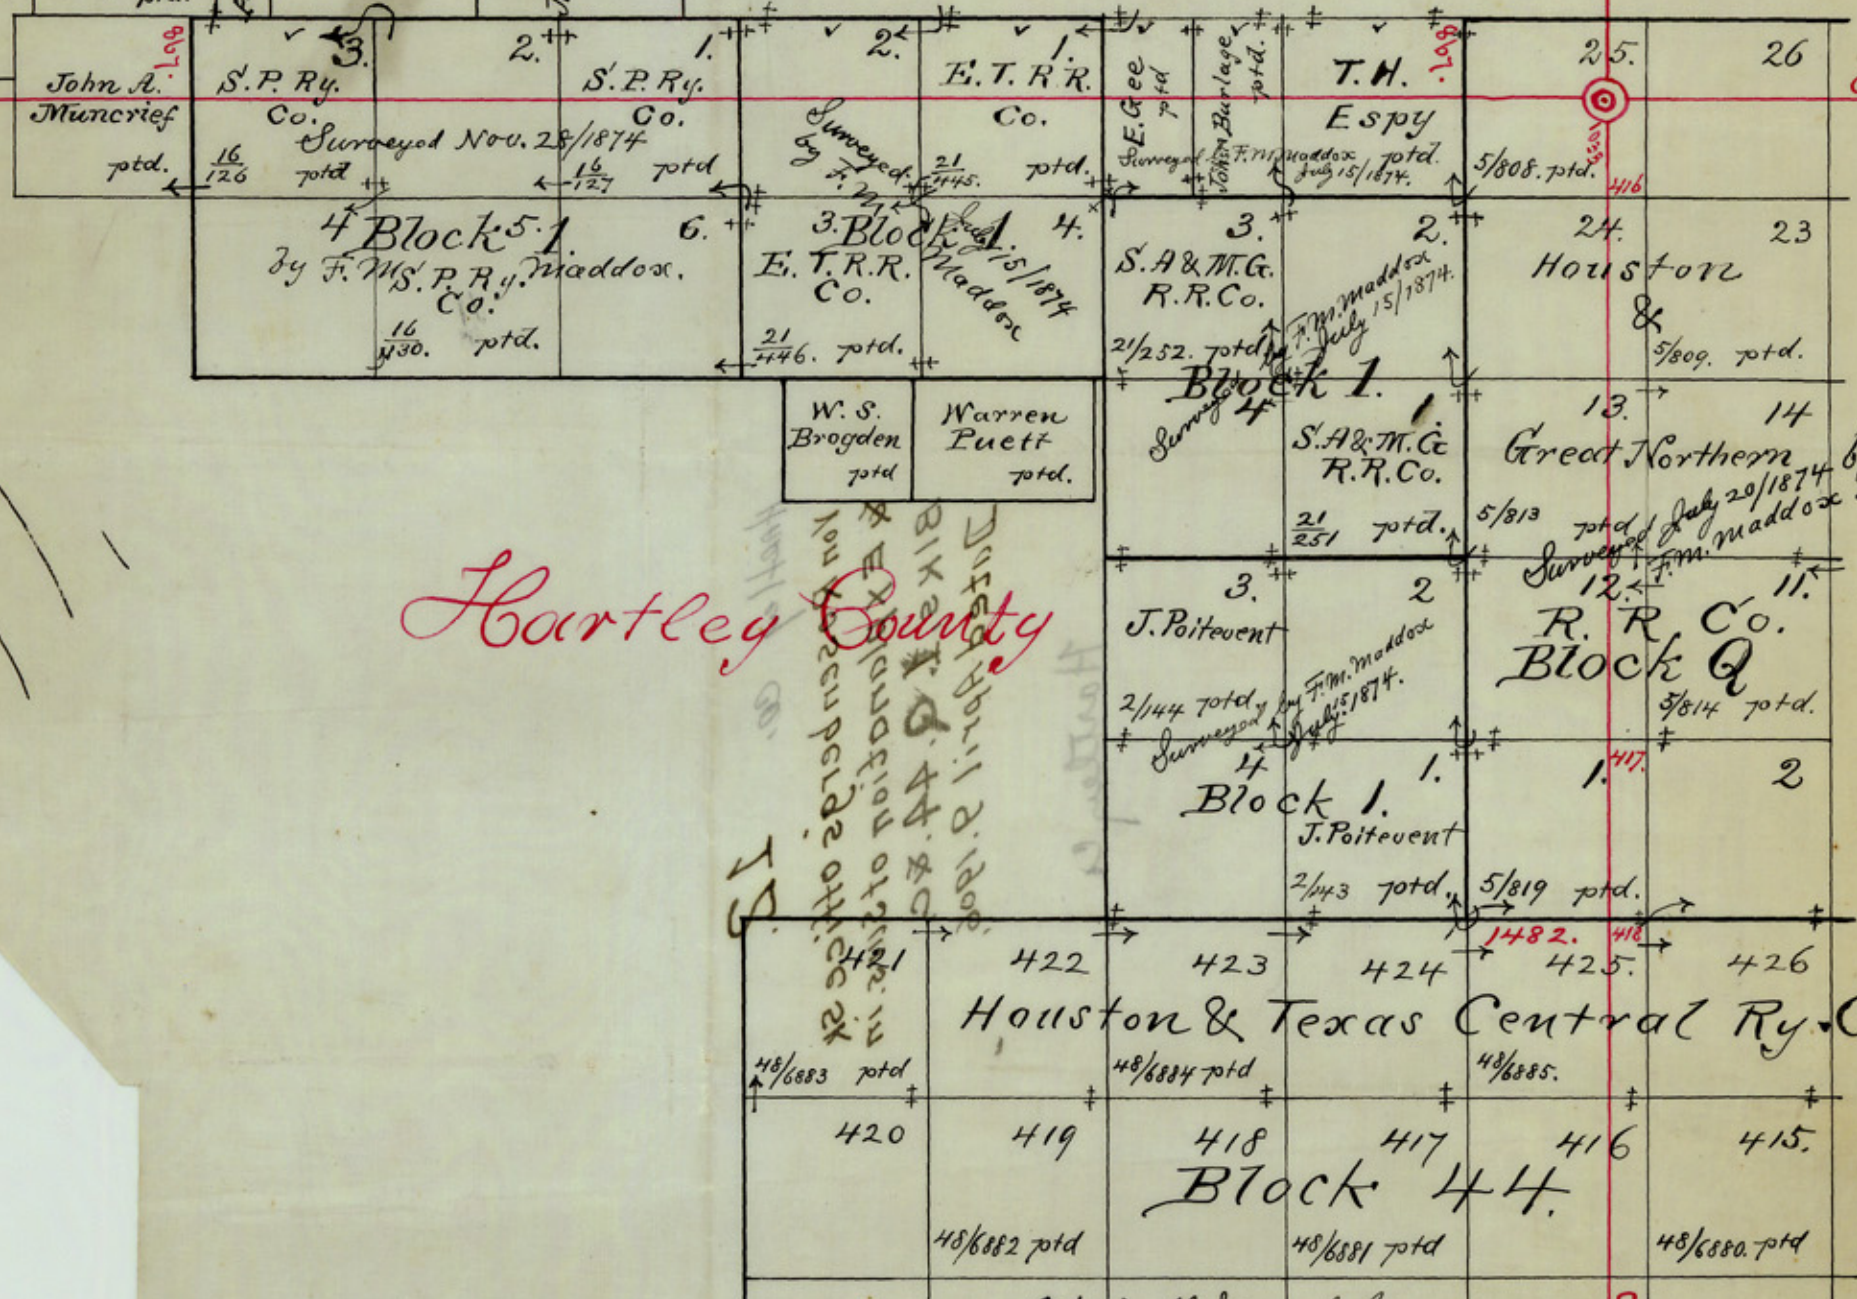 John A.
Muncrief
ptd.
867.
3.
S. P. Ry.
Co.
16/126 ptd
2.
1.
S. P. Ry.
Co.
16/127 ptd
Surveyed Nov. 28/1874
4
5.
6.
Block 1.
by F. M. Maddox.
S. P. Ry.
Co.
16/430. ptd.
2.
1.
E. T. R R.
Co.
21/445. ptd.
Surveyed
by
F. M.
Maddox
July 15/1874
3.
4.
Block 1.
E. T. R. R.
Co.
21/446. ptd.
E. Gee
ptd
John Burlage
ptd.
T. H.
Espy
ptd.
867.
Surveyed F. M. Maddox
July 15/1874.
25.
26
5/808. ptd.
416
3.
2.
S. A & M. G.
R. R. Co.
21/252. ptd.
Surveyed by F. M. Maddox
July 15/1874.
Block 1.
4
1.
S. A & M. G
R. R. Co.
21/251 ptd.
24.
23
Houston
&
5/809. ptd.
13.
14
Great Northern
5/813 ptd
Surveyed July 20/1874
F. M. Maddox
12.
11.
R. R. Co.
Block Q
5/814 ptd.
W. S.
Brogden
ptd
Warren
Puett
ptd.
Hartley County
3.
2
J. Poitevent
2/144 ptd.
Surveyed by F. M. Maddox
July 15 1874.
4
1.
Block 1.
J. Poitevent
2/143 ptd.
417.
1.
2
5/819 ptd.
1482.
418
421
422
423
424
425.
426
Houston & Texas Central Ry. C
48/6883 ptd
48/6884 ptd
48/6885.
420
419
418
417
416
415.
Block 44.
48/6882 ptd
48/6881 ptd
48/6880. ptd